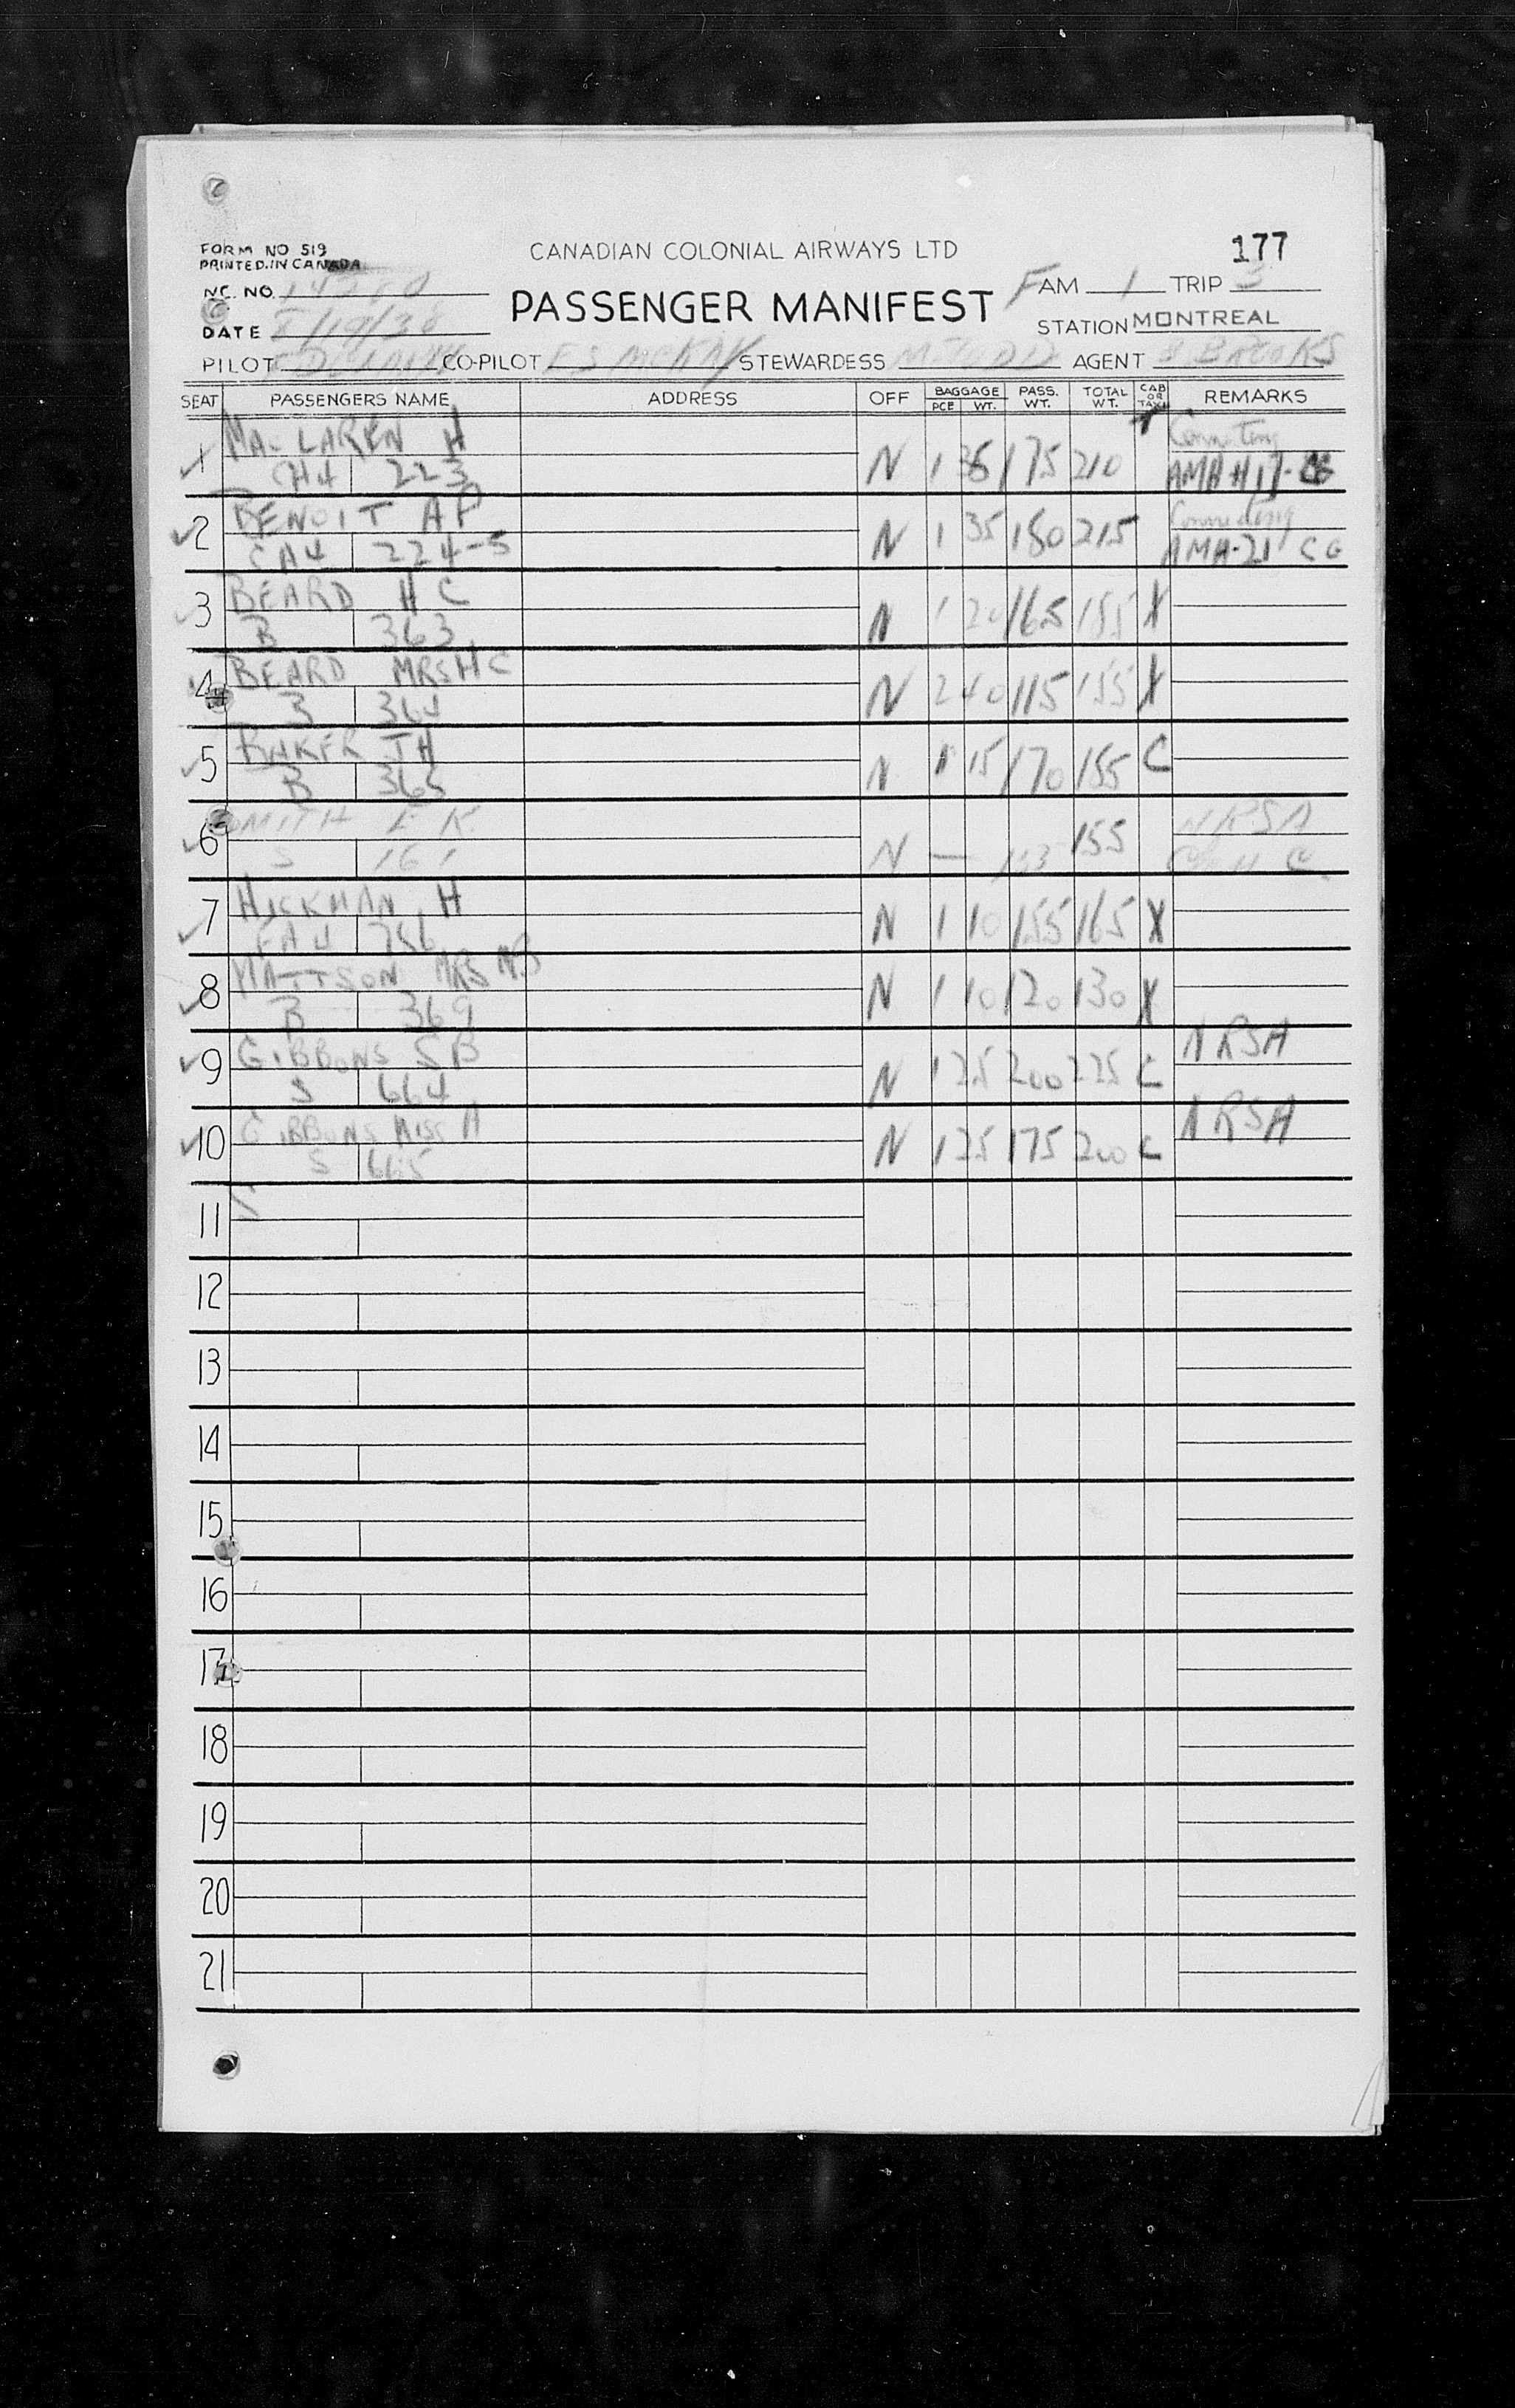 FORM NO 519
PRINTED IN CANADA
CANADIAN COLONIAL AIRWAYS LTD
177
NC. NO.
PASSENGER MANIFEST
FAM 1 TRIP 3
DATE
STATION MONTREAL
PILOT CO-PILOT F S MCKAY STEWARDESS AGENT BROOKS
SEAT PASSENGERS NAME ADDRESS OFF BAGGAGE PCE WT. PASS. WT. TOTAL WT. CAB OR TAXI REMARKS
1 MACLAREN H
CH4 223 N 1 175 210 AMA #17
2 BENOIT AP Connecting
CA4 224-5 N 1 35 180 215 AMA-21 CG
3 BEARD H C
B 363 N 1 20 165 185 X
4 BEARD MRS H C
B 364 N 2 40 115 155 X
5 BAKER TH
B 365 N 1 15 170 185 C
6 SMITH E K NRSA
S 161 N — 155
7 HICKMAN H
CA4 756 N 1 10 155 165 X
8 MATTSON MRS
B 369 N 1 10 120 130 X
9 GIBBONS SB NRSA
S 664 N 1 25 200 225 C
10 GIBBONS MISS A NRSA
S 665 N 1 25 175 200 C
11 S
12
13
14
15
16
17
18
19
20
21